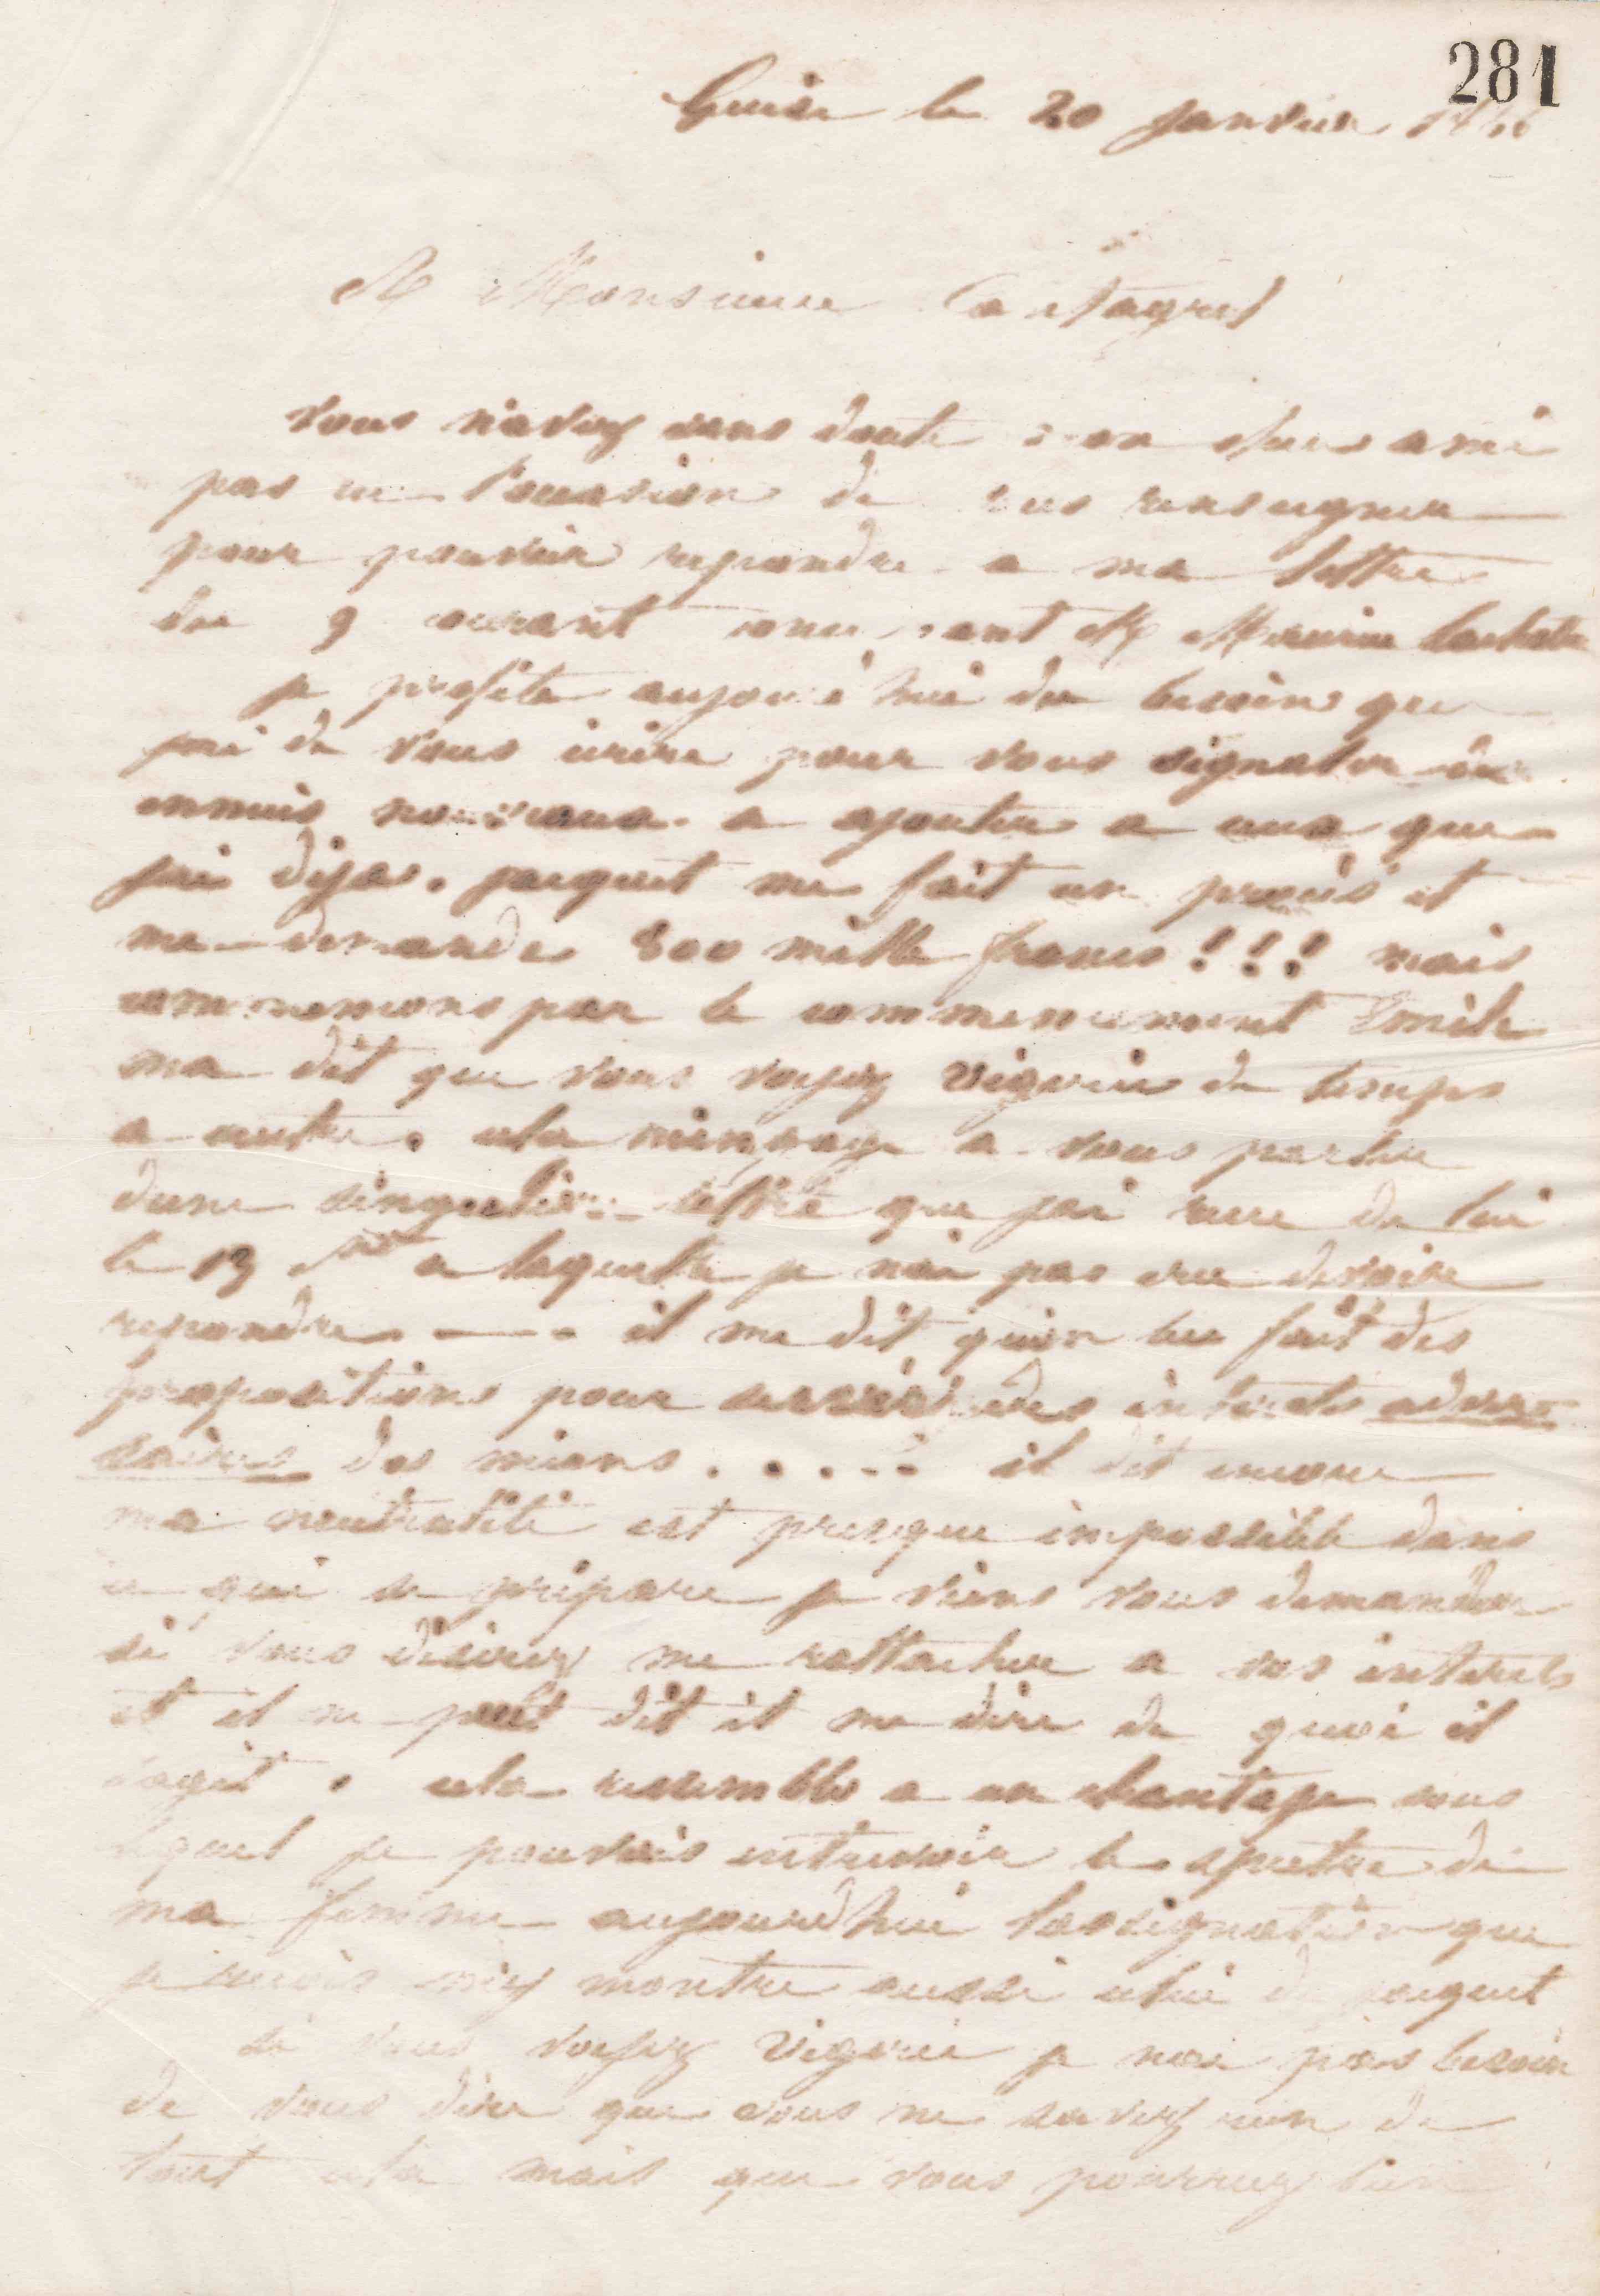 281
Guise le 20 janvier
A Monsieur Cantagrel
Vous n'avez sans doute mon cher ami
pas eu l'occasion de vous renseigner
pour pouvoir repondre a ma lettre
du 9 courant concernant Mr Maurice Lachatre
je profite aujourd'hui du besoin que
jai de vous ecrire pour vous signaler des
ennuis nouveaux a ajouter a ceux que
jai dejas. jacquet me fait un procès et
me demande 800 mille francs!!! mais
commencons par le commencement Emile
ma dit que vous voyez Vigerie de temps
a autre. cela mengage a vous parler
dune singuliere lettre que jai recue de lui
le 13 a laquelle je nai pas cru devoir
repondre — il me dit quon lui fait des
propositions pour servir des interets adver-
saires des miens . . . . . il dit encore
ma neutralité est presque impossible dans
ce qui se prépare je viens vous demander
si vous désirez me rattacher a vos interets
et il ne peut dit il me dire de quoi il
sagit. cela ressemble a un chantage sous
lequel je pouvais entrevoir le spectre de
ma femme aujourdhui lassignation que
je recois my montre aussi celui de jacquet
si vous voyez Vigerie je nai pas besoin
de vous dire que vous ne savez rien de
tout cela mais que vous pourriez bien